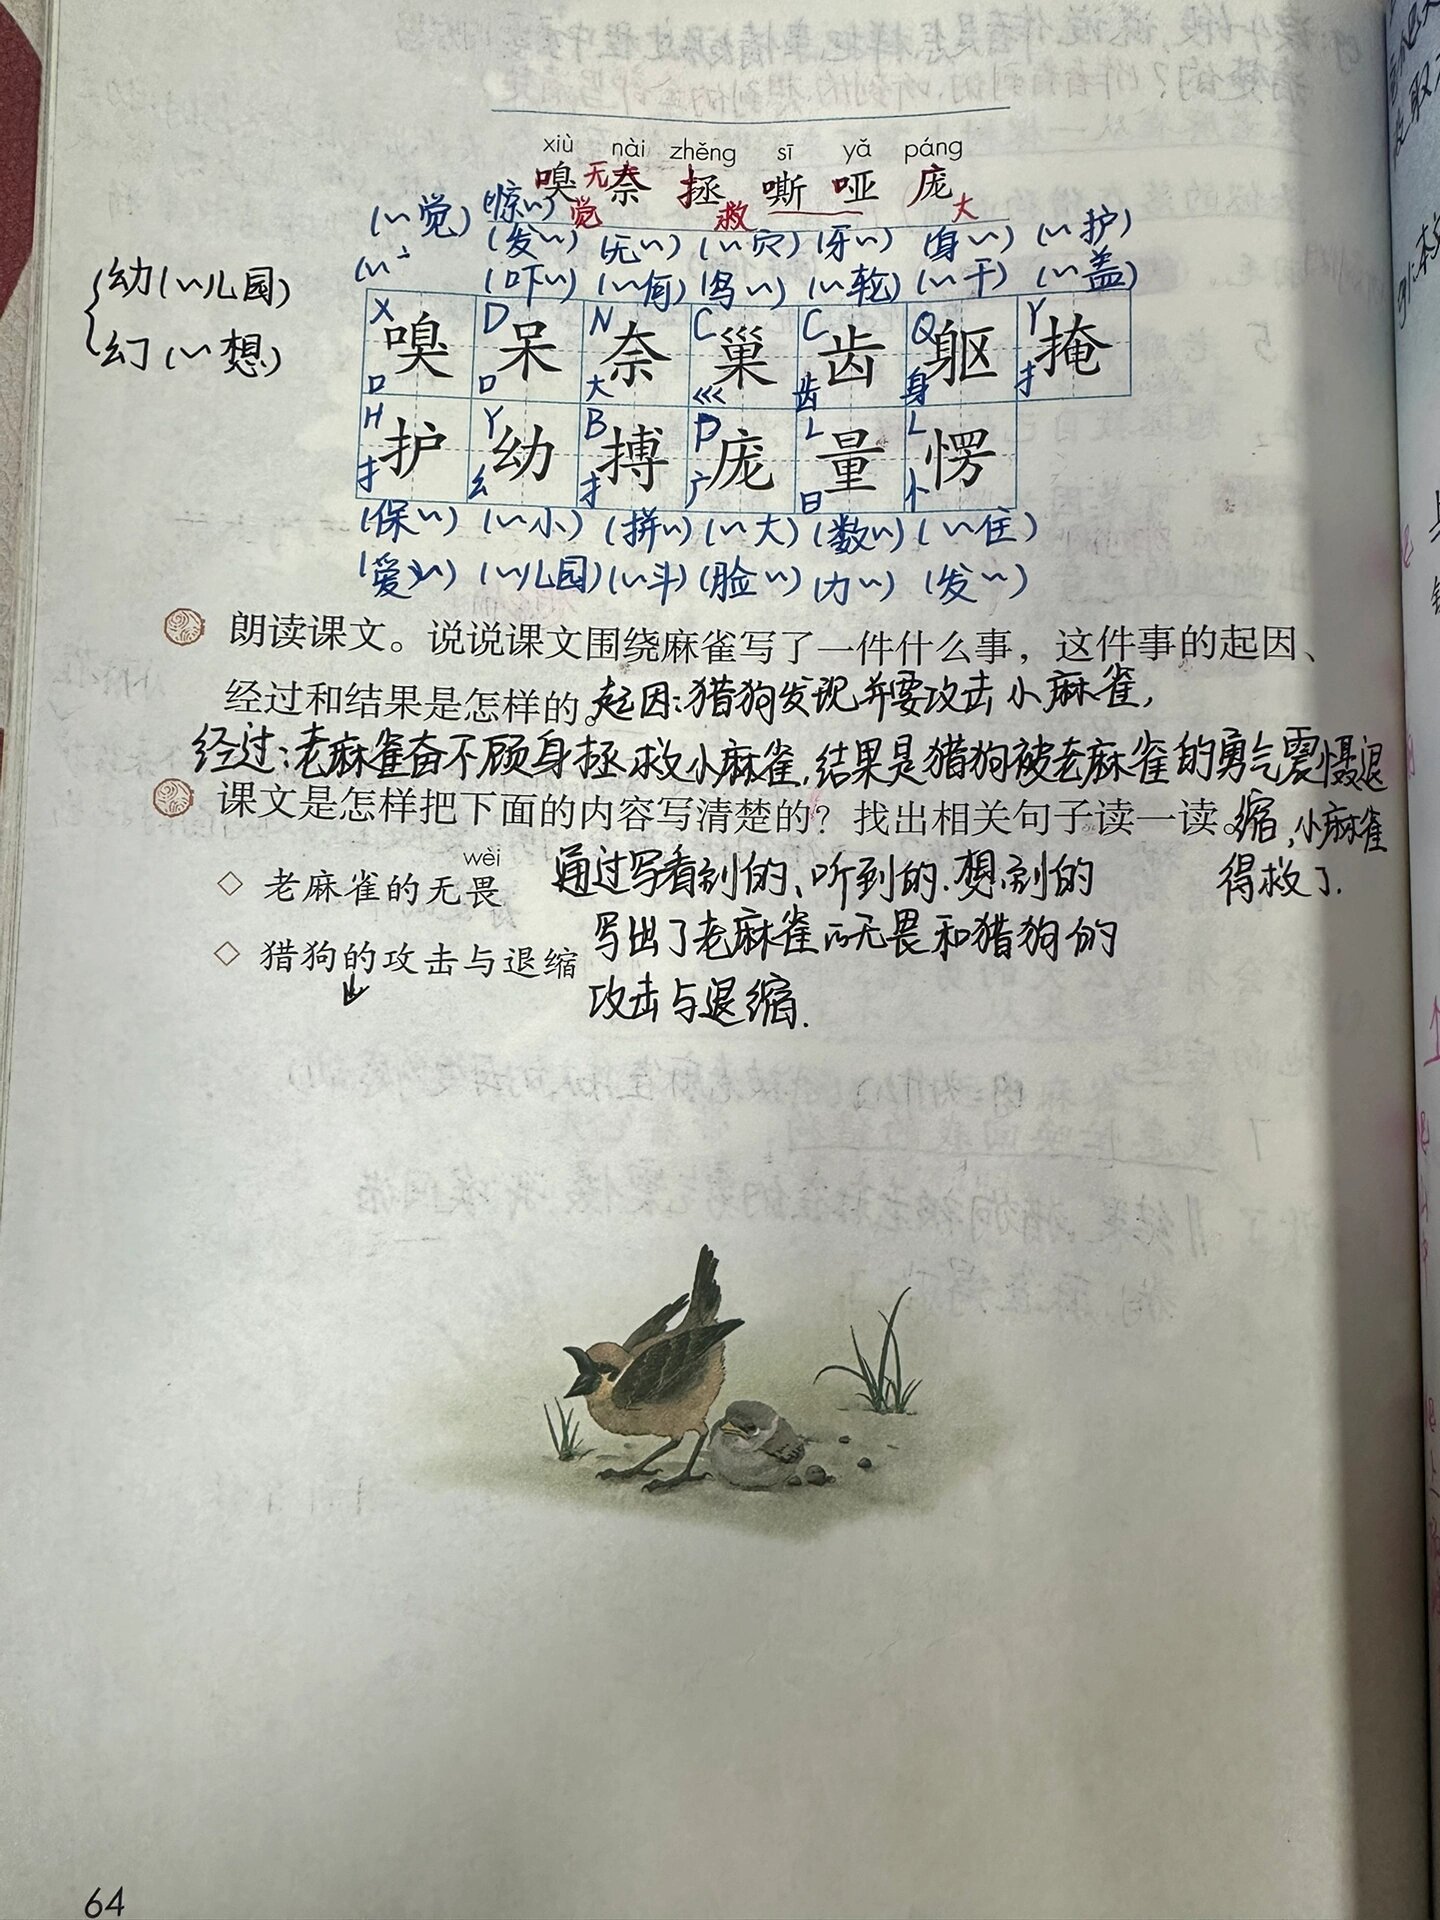 xiù nài zhěng sī yǎ páng
嗅 奈 拯 嘶 哑 庞
无 觉 救 大
(〃觉) (惊〃)
(发〃) (无〃) (〃穴) (牙〃) (身〃) (〃护)
(吓〃) (〃何) (鸟〃) (〃轮) (〃干) (〃盖)
幼(〃儿园)
幻(〃想)
X D N C C Q Y
嗅 呆 奈 巢 齿 躯 掩
口 口 大 巛 齿 身 扌
H Y B P L L
护 幼 搏 庞 量 愣
扌 幺 扌 广 日 忄
(保〃) (〃小) (拼〃) (〃大) (数〃) (〃住)
(爱〃) (〃儿园) (〃斗) (脸〃) (力〃) (发〃)
朗读课文。说说课文围绕麻雀写了一件什么事，这件事的起因、
经过和结果是怎样的。起因:猎狗发现并要攻击小麻雀,
经过:老麻雀奋不顾身拯救小麻雀,结果是猎狗被老麻雀的勇气震慑退
课文是怎样把下面的内容写清楚的？找出相关句子读一读。缩,小麻雀
得救了.
wèi
◇ 老麻雀的无畏 通过写看到的、听到的.想到的
写出了老麻雀的无畏和猎狗的
◇ 猎狗的攻击与退缩
攻击与退缩.
64